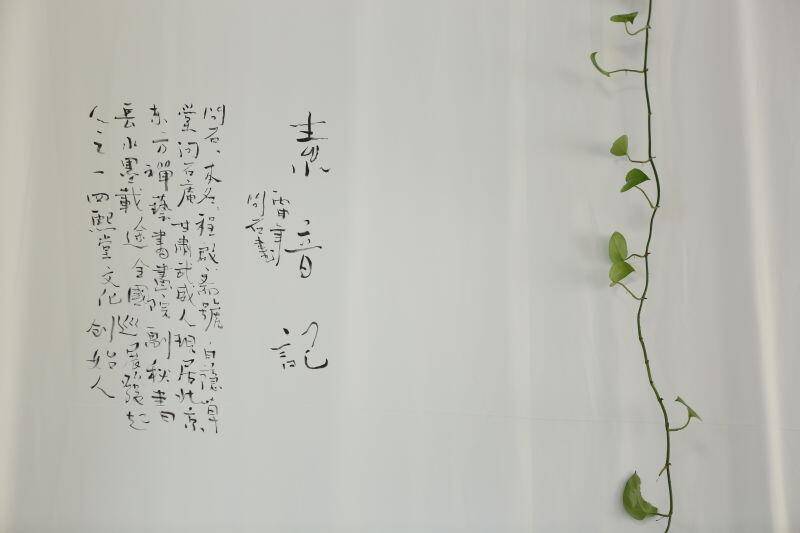 素音記
問石畫
問石、本名程啟 號自隱草
堂問石庵甘肅武威人現居北京
东方禪藝書畫院副秘書
長水墨載途全國巡展發起
人之一四熙堂文化創始人